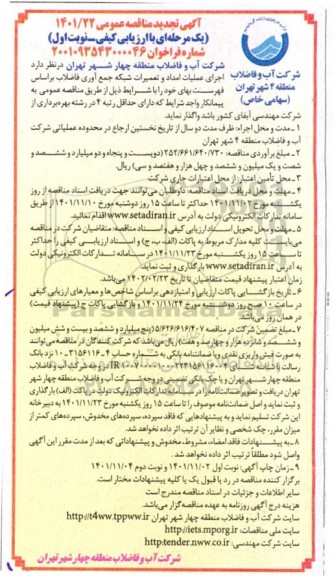 آگهی تجدید مناقصه عمومی ۱۴۰۱/۲۲
(یک مرحله‌ای با ارزیابی کیفی_نوبت اول)
شماره فراخوان ۲۰۰۱۰۹۳۵۴۳۰۰۰۰۴۶
شرکت آب و فاضلاب
منطقه ۴ شهر تهران
(سهامی خاص)
شرکت آب و فاضلاب منطقه چهار شهر تهران درنظر دارد
اجرای عملیات امداد و تعمیرات شبکه جمع آوری فاضلاب براساس
فهرست بهای خود را با شرایط ذیل از طریق مناقصه عمومی به
پیمانکار واجد شرایط که دارای حداقل رتبه ۴ در رشته بهره‌برداری از
شرکت مهندسی آبفای کشور باشد واگذار نماید.
۱_مدت و محل اجراء: ظرف مدت دو سال از تاریخ نخستین ارجاع در محدوده عملیاتی شرکت
آب و فاضلاب منطقه ۴ شهر تهران
۲_مبلغ برآوردی مناقصه: ۲۵۲/۶۶۱/۶۴۰/۷۳۰ (دویست و پنجاه و دو میلیارد و ششصد و
شصت و یک میلیون و ششصد و چهل هزار و هفتصد و سی) ریال.
۳_محل تأمین اعتبار: از محل اعتبارات جاری شرکت
۴_مهلت و محل دریافت اسناد مناقصه: داوطلبان می‌توانند جهت دریافت اسناد مناقصه از روز
یکشنبه مورخ ۱۴۰۱/۱۱/۰۲ حداکثر تا ساعت ۱۵ روز دوشنبه مورخ ۱۴۰۱/۱۱/۱۰ از طریق
سامانه تدارکات الکترونیکی دولت به آدرس www.setadiran.ir اقدام نمائید.
۵_مهلت و محل تحویل اسناد ارزیابی کیفی و اسناد مناقصه: متقاضیان شرکت در مناقصه
می‌بایست کلیه مدارک مربوط به پاکات (الف، ب، ج) و اسناد ارزیابی کیفی را حداکثر
تا ساعت ۱۵ روز یکشنبه مورخ ۱۴۰۱/۱۱/۲۳ در سامانه تدارکات الکترونیکی دولت
به آدرس www.setadiran.ir بارگذاری و ثبت نمایند.
زمان اعتبار پیشنهاد قیمت متقاضیان تا تاریخ ۱۴۰۲/۰۲/۲۳ می‌باشد.
۶_تاریخ بازگشائی پاکات ارزیابی و امتیازدهی براساس شاخص‌ها و معیارهای ارزیابی کیفی
در ساعت ۱۰ صبح روز دوشنبه مورخ ۱۴۰۱/۱۱/۲۴ و بازگشائی پاکات ج (پیشنهاد قیمت)
در همان روز می‌باشد.
۷_مبلغ تضمین شرکت در مناقصه ۵/۶۲۶/۶۱۶/۴۰۷ (پنج میلیارد و ششصد و بیست و شش میلیون
و ششصد و شانزده هزار و چهارصد و هفت) ریال می‌باشد که شرکت کنندگان در مناقصه می‌توانند
به صورت فیش واریزی نقدی و یا ضمانتنامه بانکی به شماره حساب
نزد بانک
رسالت با شناسه شبا
در وجه شرکت آب و فاضلاب
منطقه چهار شهر تهران و یا چک بانکی تضمینی در وجه شرکت آب و فاضلاب منطقه چهار شهر
تهران دریافت و تصویر ضمانتنامه را در سامانه تدارکات الکترونیک دولت در پاکت (الف) بارگذاری
و ثبت نماید و اصل ضمانتنامه موصوف را تا ساعت ۱۵ روز یکشنبه مورخ ۱۴۰۱/۱۱/۲۳ به دبیرخانه
این شرکت تسلیم نماید و به پیشنهادهایی که فاقد سپرده، سپرده‌های مخدوش، سپرده‌های کمتر از
میزان مقرر، چک شخصی و نظایر آن ترتیب اثر داده نخواهد شد.
۸_به پیشنهادات فاقد امضاء، مشروط، مخدوش و پیشنهاداتی که بعد از مدت مقرر این آگهی
واصل شود مطلقا ترتیب اثر داده نخواهد شد.
۹_زمان چاپ آگهی: نوبت اول ۱۴۰۱/۱۱/۰۲ و نوبت دوم ۱۴۰۱/۱۱/۰۴
برگزار کننده مناقصه در رد یا قبول یک یا کلیه پیشنهادات مختار است.
سایر اطلاعات و جزئیات در اسناد مناقصه مندرج است
هزینه درج آگهی روزنامه به عهده مناقصه‌گزار می‌باشد.
سایت شرکت آب و فاضلاب منطقه چهار شهر تهران http://t4ww.tppww.ir
سایت ملی مناقصات: http://iets.mporg.ir
سایت شرکت مهندسی: http:tender.nww.co.ir
شرکت آب و فاضلاب منطقه چهار شهر تهران